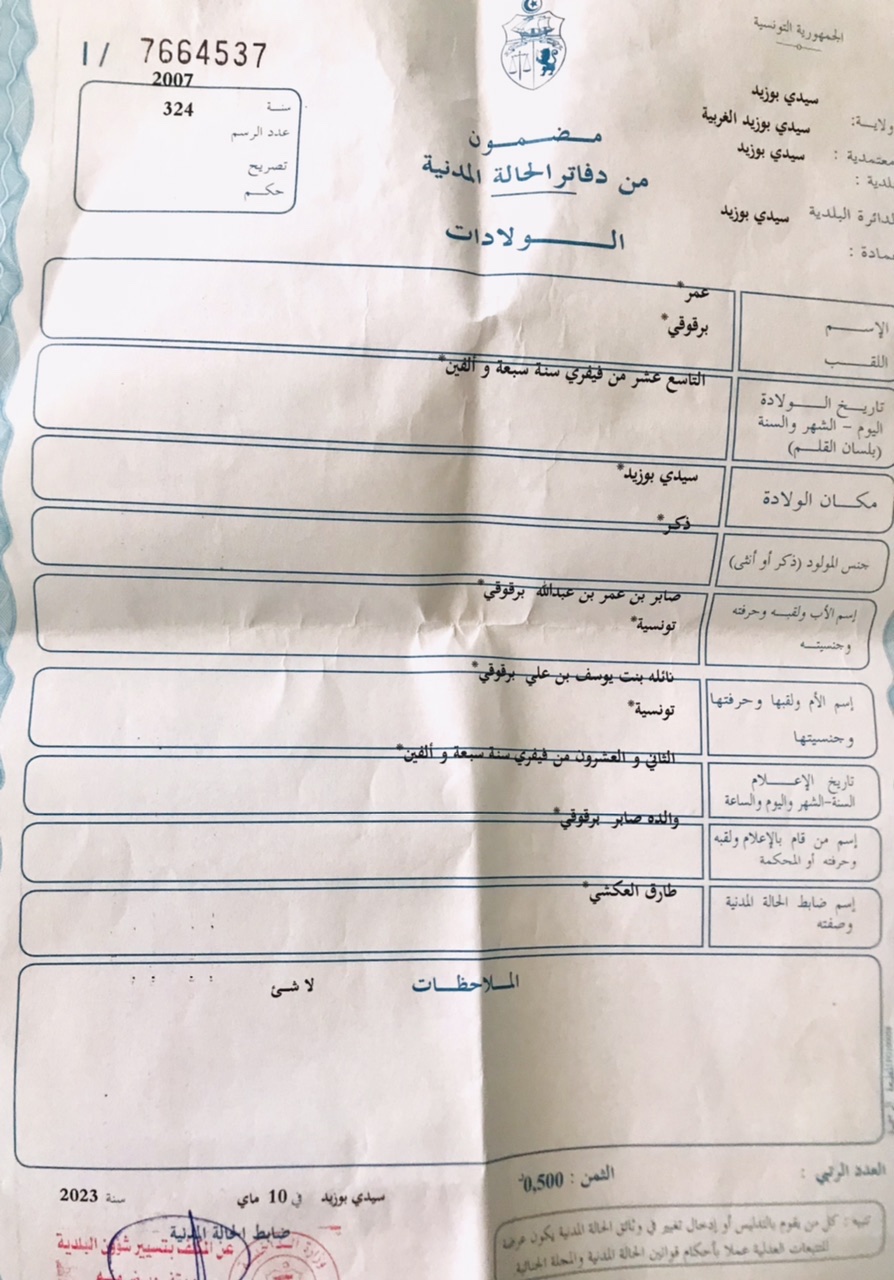 الجمهورية التونسية
I / 7664537
2007
سنة
324
عدد الرسم
تصريح
حكم
مضمون
من دفاتر الحالة المدنية
الولادات
سيدي بوزيد
ولاية:
سيدي بوزيد الغربية
معتمدية :
سيدي بوزيد
بلدية :
الدائرة البلدية سيدي بوزيد
عمادة :
الإسم
عمر*
اللقب
برقوقي*
تاريخ الولادة
اليوم - الشهر والسنة
(بلسان القلم)
التاسع عشر من فيفري سنة سبعة و ألفين*
مكان الولادة
سيدي بوزيد*
جنس المولود (ذكر أو أنثى)
ذكر*
إسم الأب ولقبه وحرفته
وجنسيته
صابر بن عمر بن عبدالله برقوقي*
تونسية*
إسم الأم ولقبها وحرفتها
وجنسيتها
نائله بنت يوسف بن علي برقوقي*
تونسية*
تاريخ الإعلام
السنة-الشهر واليوم والساعة
الثاني و العشرون من فيفري سنة سبعة و ألفين*
إسم من قام بالإعلام ولقبه
وحرفته أو المحكمة
والده صابر برقوقي*
إسم ضابط الحالة المدنية
وصفته
طارق العكشي*
الملاحظات
لا شئ
العدد الرتبي :
الثمن : 0,500د
سيدي بوزيد في 10 ماي سنة 2023
ضابط الحالة المدنية
عن المكلف بتسيير شؤون البلدية
تنبيه : كل من يقوم بالتدليس أو إدخال تغيير في وثائق الحالة المدنية يكون عرضة
للتتبعات العدلية عملا بأحكام قوانين الحالة المدنية والمجلة الجنائية